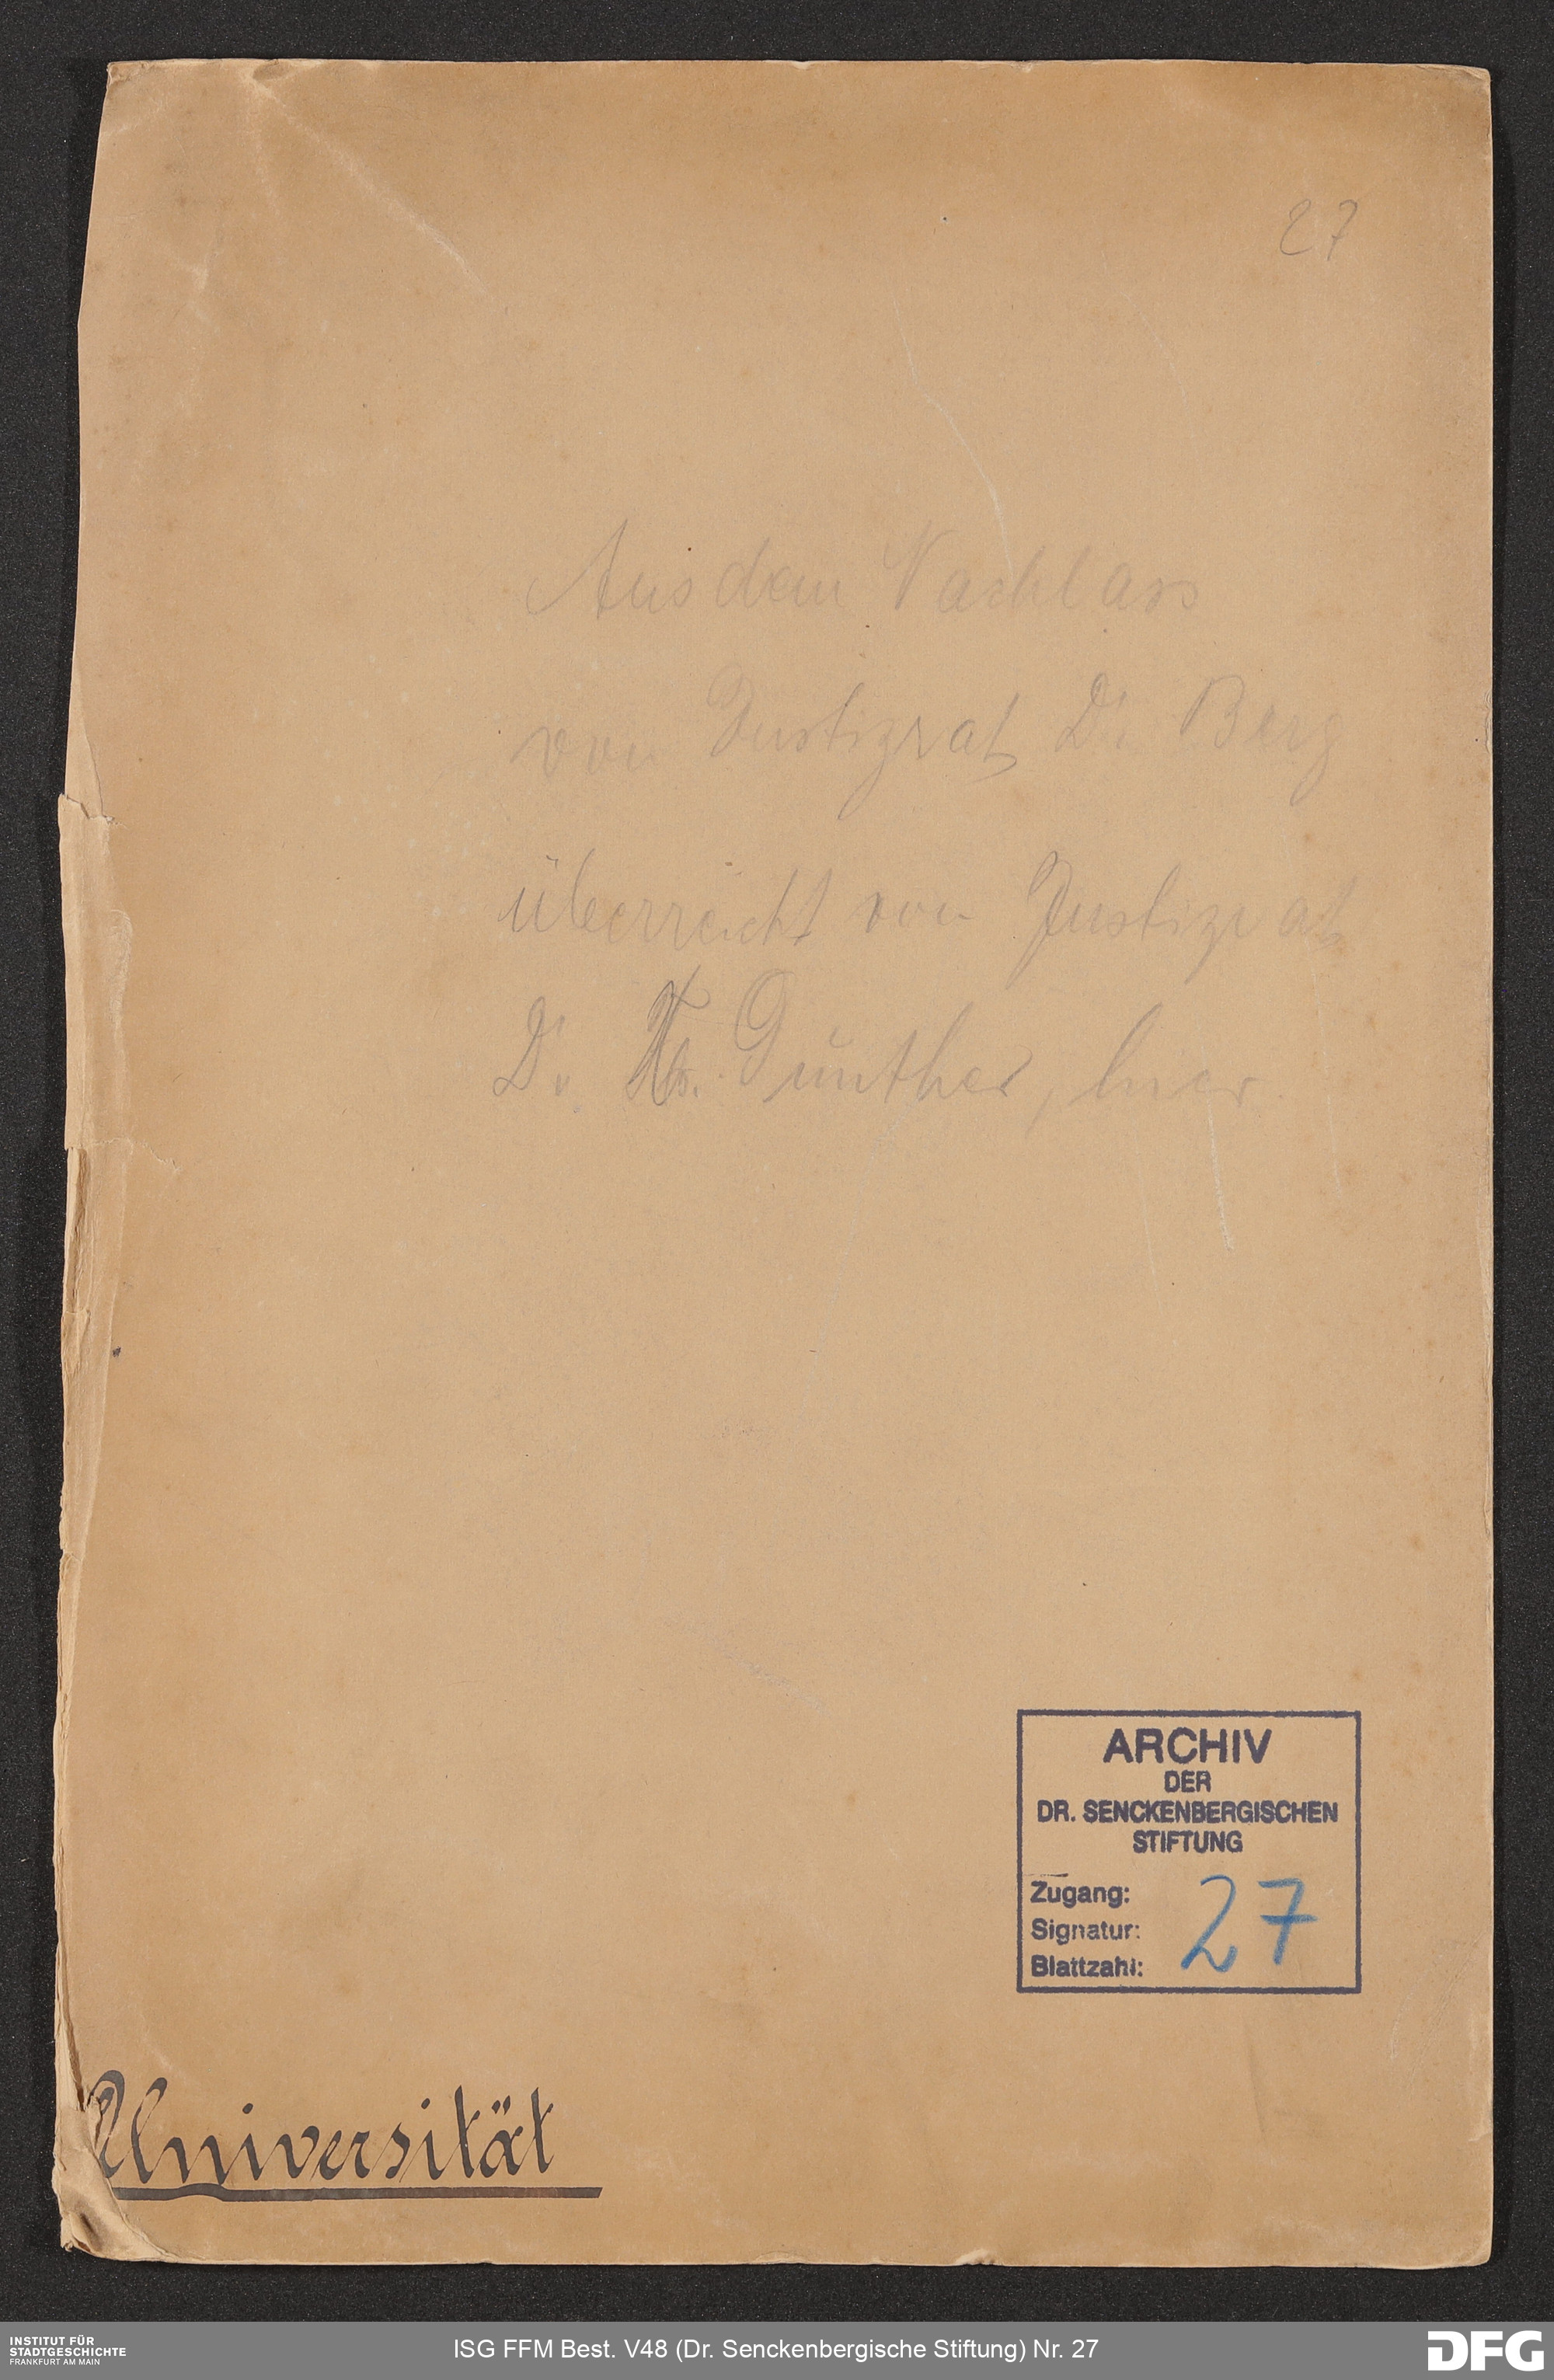 27
Aus dem Nachlass
von Justizrat Dr. Berg
überreicht von Justizrat
Dr. Günther, hier.
ARCHIV
DER
DR. SENCKENBERGISCHEN
STIFTUNG
Zugang:
Signatur: 27
Blattzahl:
Universität
INSTITUT FÜR
STADTGESCHICHTE
FRANKFURT AM MAIN
ISG FFM Best. V48 (Dr. Senckenbergische Stiftung) Nr. 27
DFG